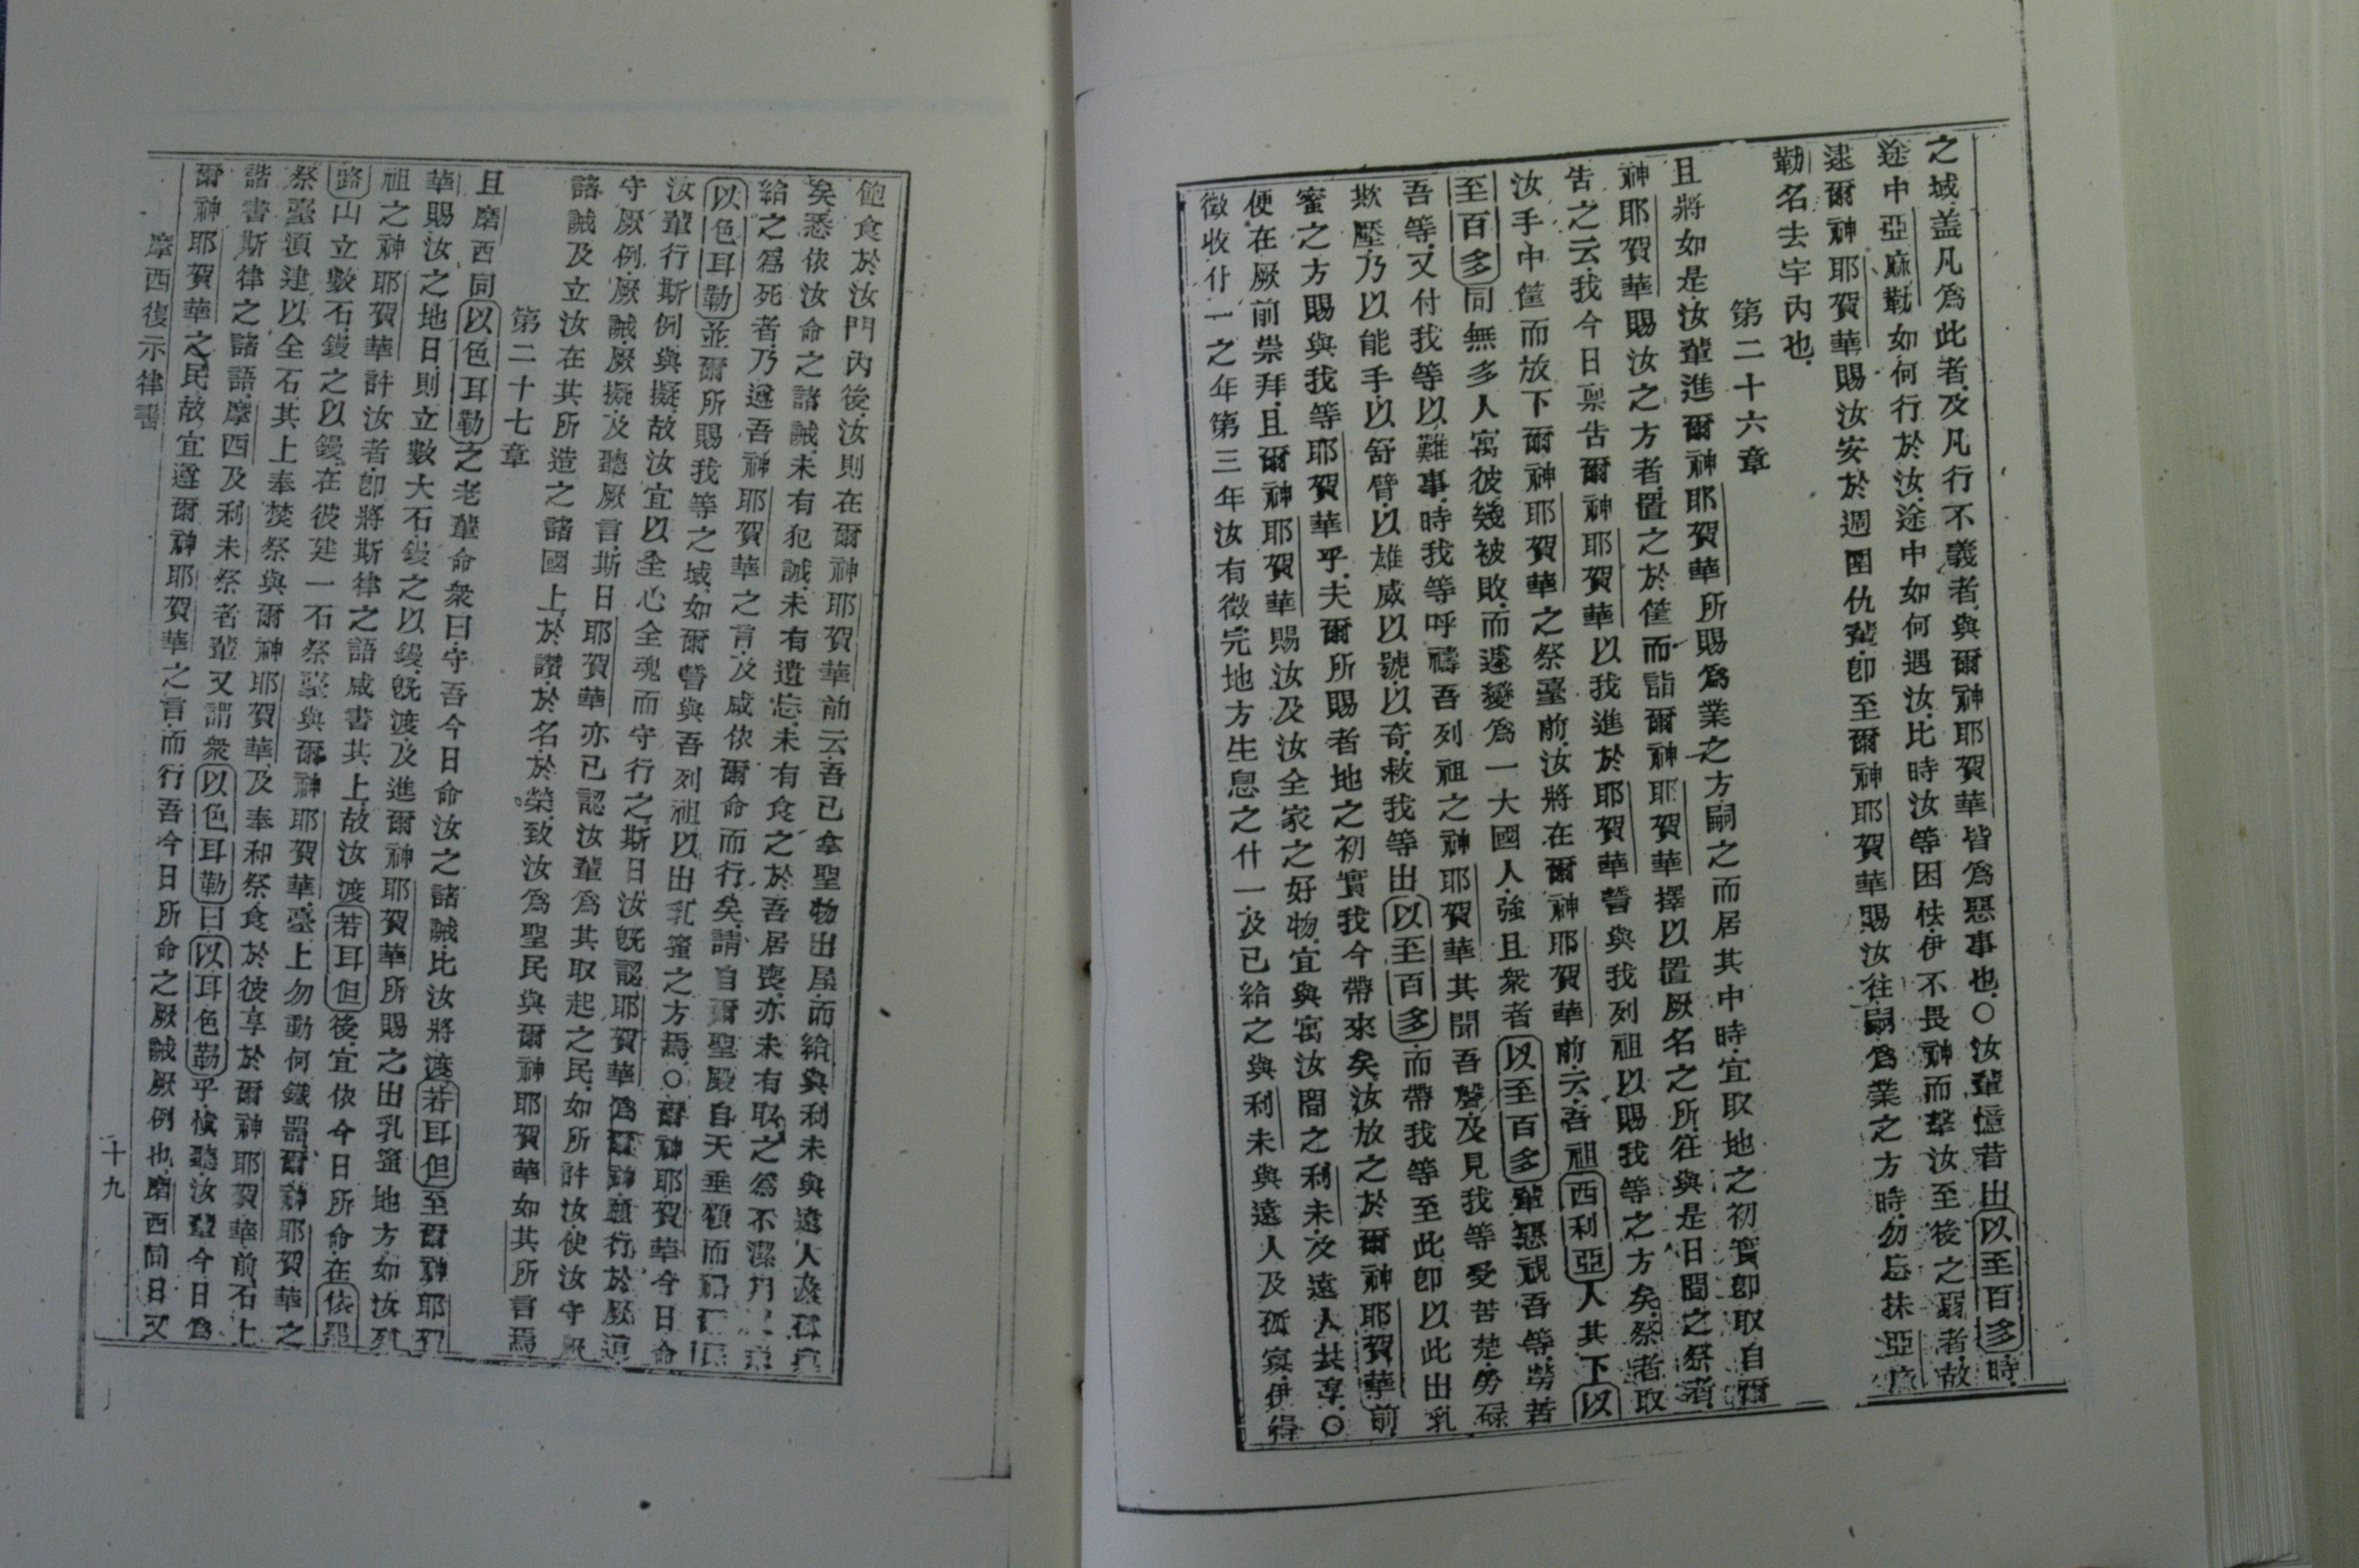 之域蓋凡爲此者及凡行不義者與爾神耶賀華皆爲惡事也○汝輩憶昔出以至百多時
途中亞麻勒如何行於汝途中如何遇汝比時汝等困怯伊不畏神而擊汝至後之弱者故
逮爾神耶賀華賜汝安於週圍仇輩卽至爾神耶賀華賜汝往嗣爲業之方時勿忘抹亞麻
勒名去宇內也
第二十六章
且將如是汝輩進爾神耶賀華所賜爲業之方嗣之而居其中時宜取地之初實卽取自爾
神耶賀華賜汝之方者置之於筐而詣爾神耶賀華擇以置厥名之所往與是日間之祭者
告之云我今日稟告爾神耶賀華以我進於耶賀華誓與我列祖以賜我等之方矣祭者取
汝手中筐而放下爾神耶賀華之祭臺前汝將在爾神耶賀華前云吾祖西利亞人其下以
至百多同無多人寓彼幾被敗而遂變爲一大國人強且衆者以至百多輩惡視吾等勞苦
吾等又付我等以難事時我等呼禱吾列祖之神耶賀華其聞吾聲及見我等受苦楚勞碌
欺壓乃以能手以舒臂以雄威以號以奇救我等出以至百多而帶我等至此卽以此出乳
蜜之方賜與我等耶賀華乎夫爾所賜者地之初實我今帶來矣汝放之於爾神耶賀華前
便在厥前崇拜且爾神耶賀華賜汝及汝全家之好物宜與寓汝間之利未及遠人共享○
徵收什一之年第三年汝有徵完地方生息之什一及已給之與利未與遠人及孤寡伊得
飽食於汝門內後汝則在爾神耶賀華前云吾已拿聖物出屋而給與利未與遠人及孤寡
矣悉依汝命之諸誡未有犯誡未有遺忘未有食之於吾居喪亦未有取之爲不潔用
給之爲死者乃遵吾神耶賀華之言及咸依爾命而行矣請自爾聖殿自天垂顧而福
以色耳勒並爾所賜我等之域如爾誓與吾列祖以出乳蜜之方焉○爾神耶賀華今日命
汝輩行斯例與擬故汝宜以全心全魂而守行之斯日汝旣認耶賀華爲爾神願行於厥道
守厥例厥誡厥擬及聽厥言斯日耶賀華亦已認汝輩爲其取起之民如所許汝使汝守厥
諸誡及立汝在其所造之諸國上於讚於名於榮致汝爲聖民與爾神耶賀華如其所言焉
第二十七章
且磨西同以色耳勒之老輩命衆曰守吾今日命汝之諸誡比汝將渡若耳但至爾神耶賀
華賜汝之地日則立數大石鏝之以鏝旣渡及進爾神耶賀華所賜之出乳蜜地方如汝列
祖之神耶賀華許汝者卽將斯律之語咸書其上故汝渡若耳但後宜依今日所命在依羅
路山立數石鏝之以鏝在彼建一石祭臺與爾神耶賀華臺上勿動何鐵器爾神耶賀華之
祭臺須建以全石其上奉焚祭與爾神耶賀華及奉和祭食於彼享於爾神耶賀華前石上
諧書斯律之諸語摩西及利未祭者輩又謂衆以色耳勒曰以耳色勒乎橫聽汝輩今日爲
爾神耶賀華之民故宜遵爾神耶賀華之言而行吾今日所命之厥誡厥例也磨西同日又
摩西復示律書
十九